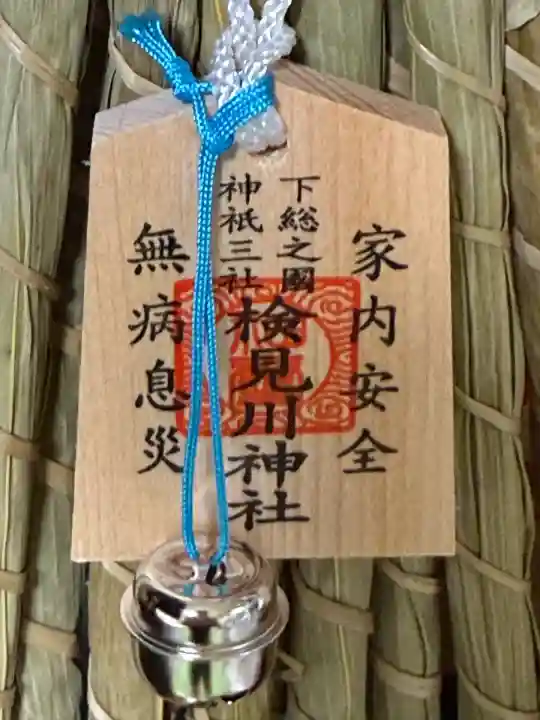 家内安全
下総之國
神祇三社
検見川神社
無病息災